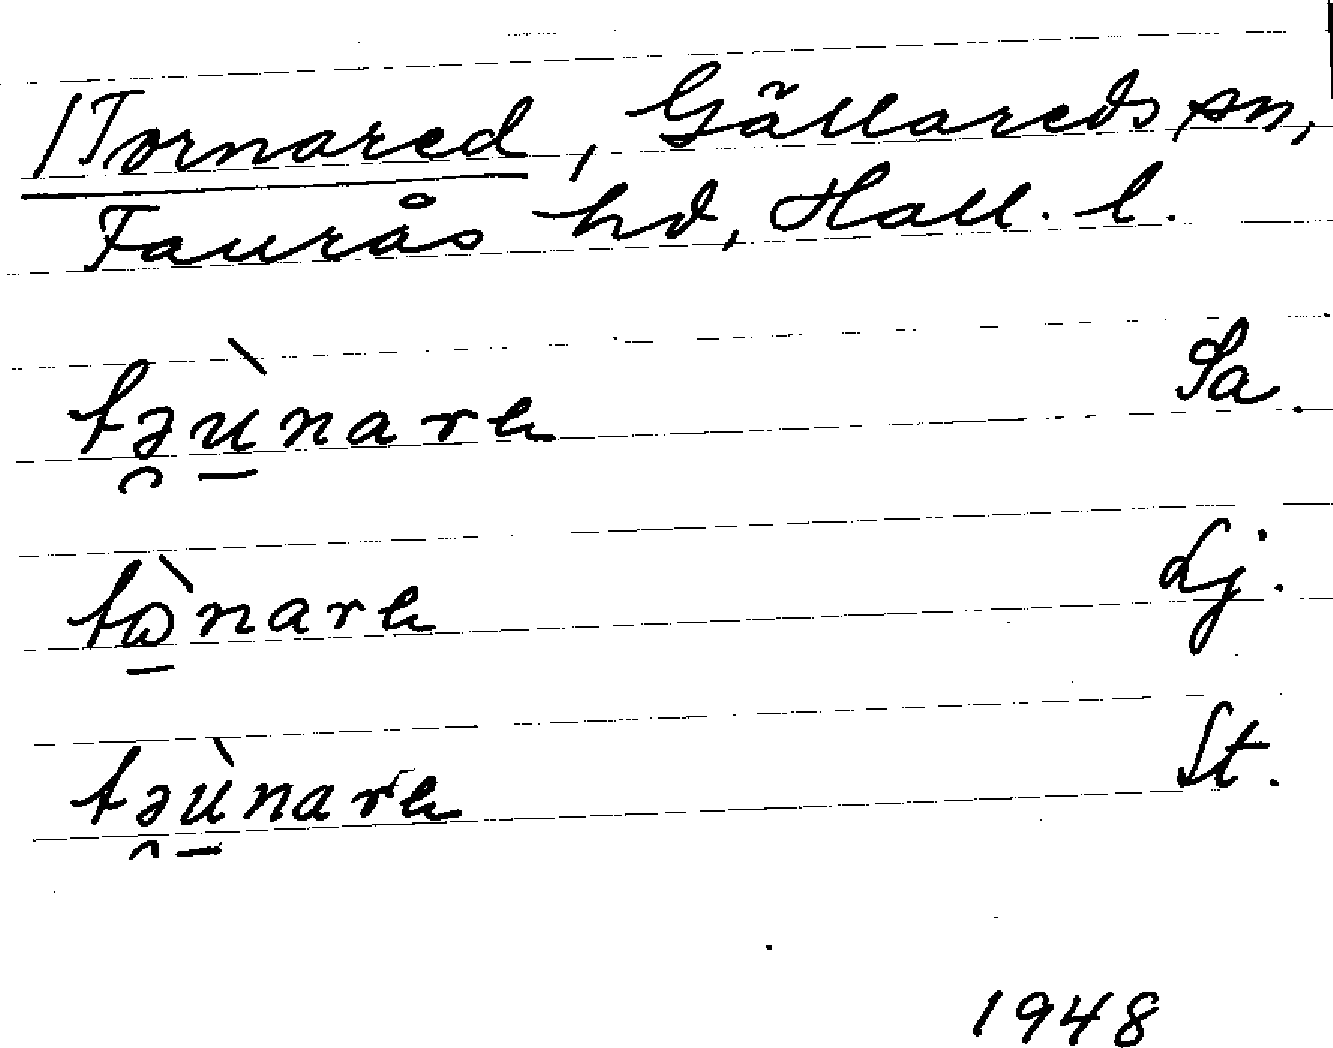 /Tornared, Gällareds sn,
Faurås hd, Hall. l.
tə̯ù̠nare Sa.
tὼ̠nare Lj.
tə̯ù̠nare St.
1948